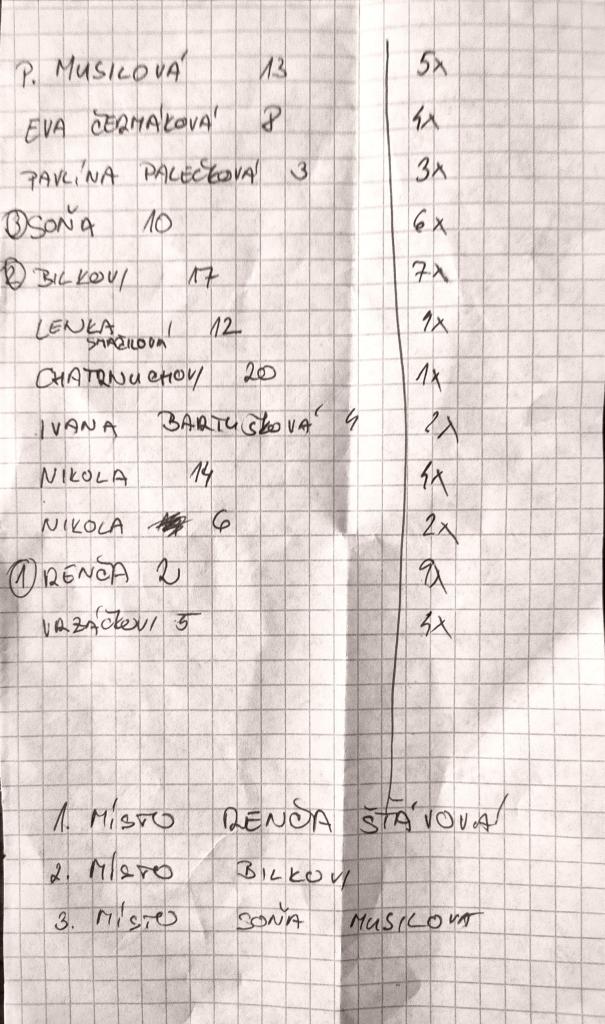 P. MUSILOVÁ 13 5x
EVA ČERMÁKOVÁ 8 4x
PAVLÍNA PALEČKOVÁ 3 3x
③ SOŇA 10 6x
② BILKOVI 17 7x
LENKA SMAŽILOVÁ 12 1x
CHATRNUCHOVI 20 1x
IVANA BARTUŠKOVÁ 4 2x
NIKOLA 14 4x
NIKOLA 6 2x
① RENČA 2 9x
VRZÁČKOVI 5 4x
1. MÍSTO RENČA ŠŤÁVOVÁ
2. MÍSTO BILKOVI
3. MÍSTO SOŇA MUSILOVÁ